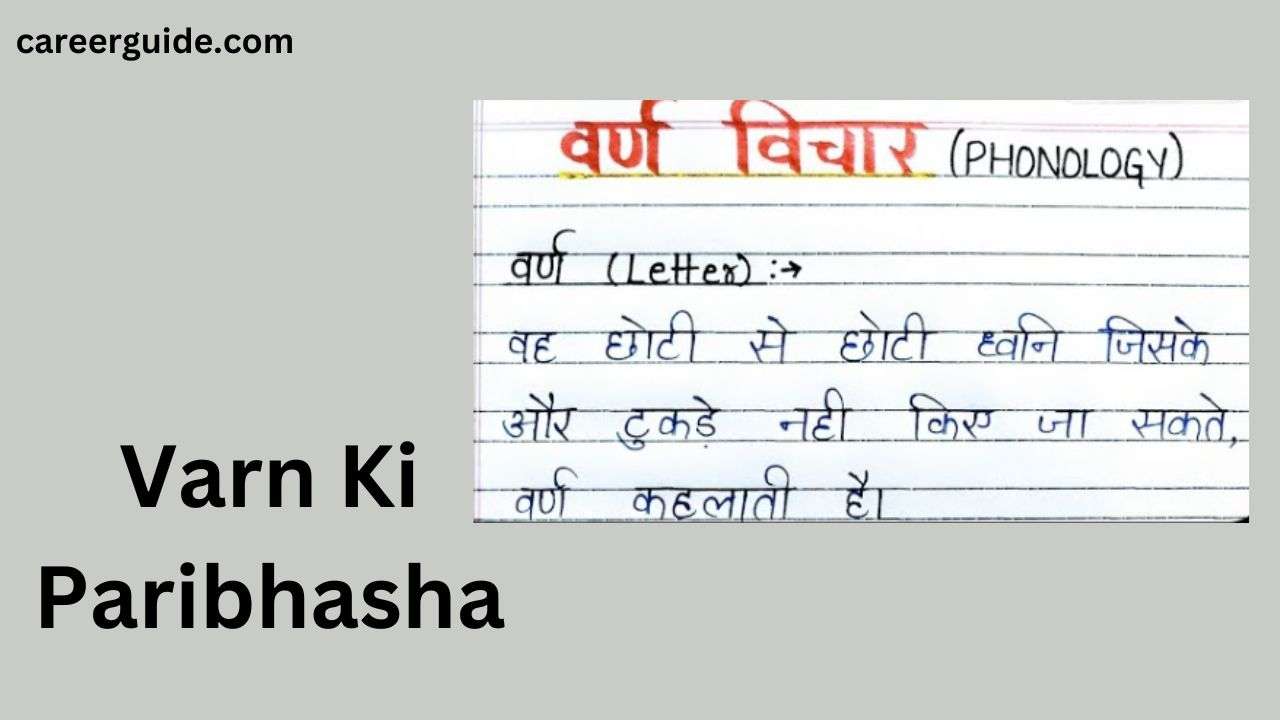 careerguide.com
वर्ण विचार (PHONOLOGY)
वर्ण (Letter) :→
वह छोटी से छोटी ध्वनि जिसके
और टुकड़े नही किए जा सकते,
वर्ण कहलाती है।
Varn Ki
Paribhasha